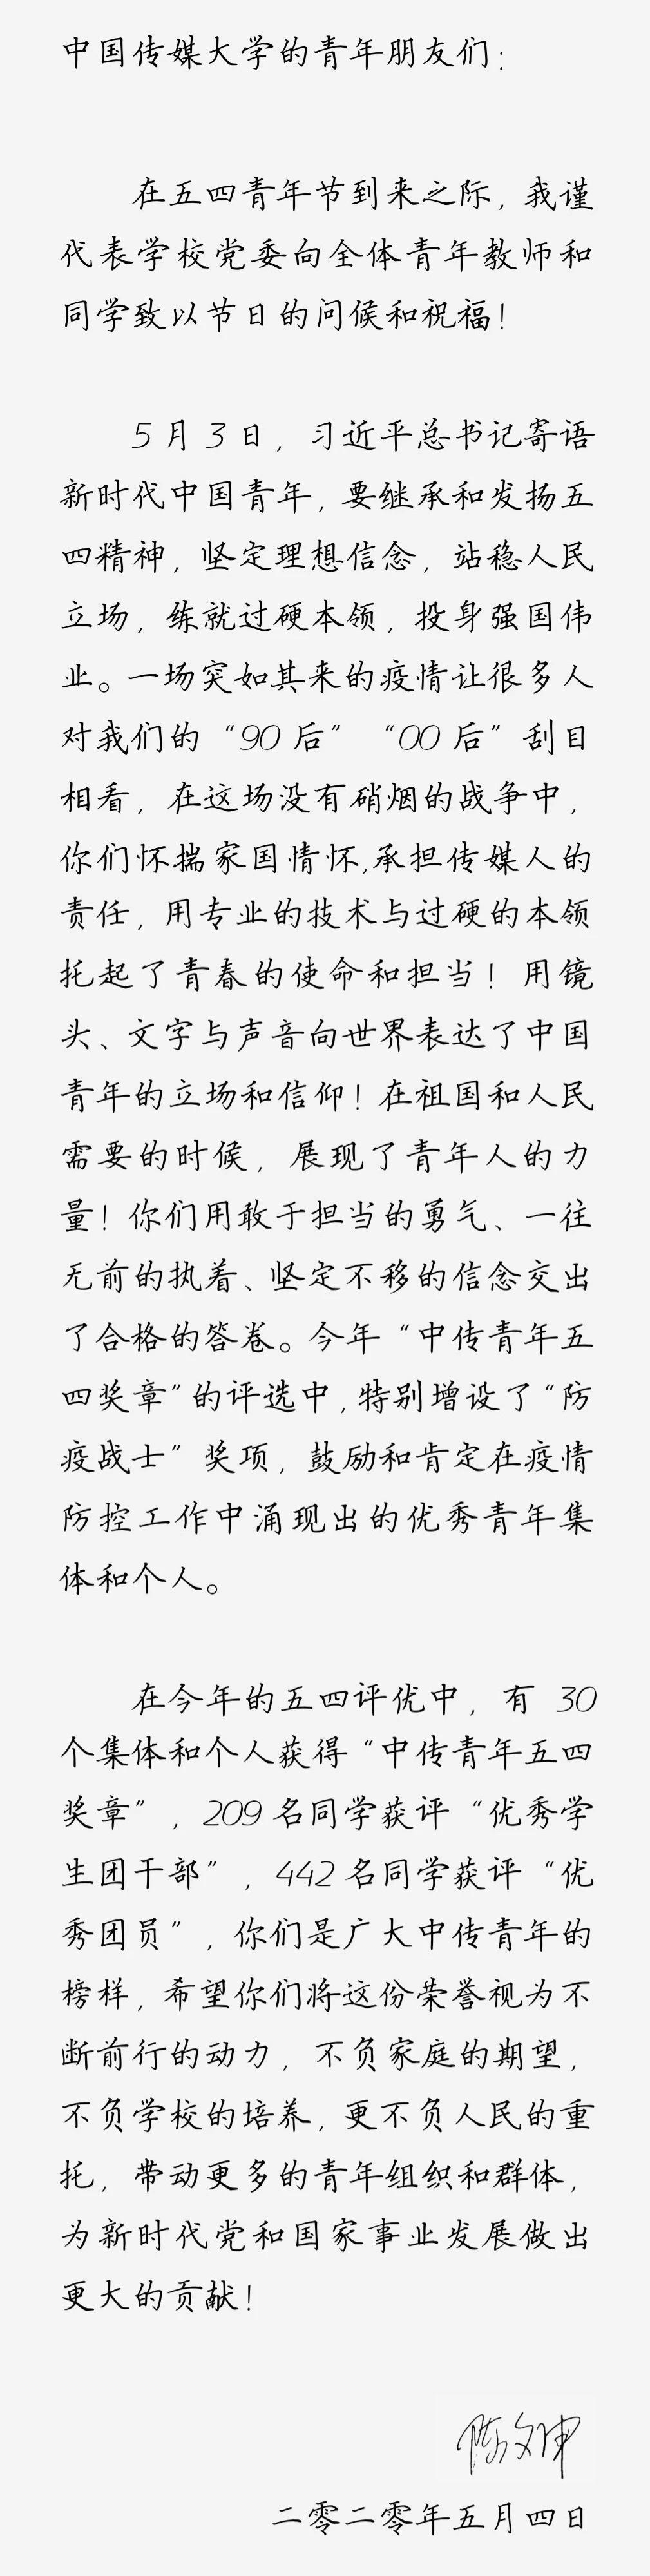 中国传媒大学的青年朋友们：
在五四青年节到来之际，我谨
代表学校党委向全体青年教师和
同学致以节日的问候和祝福！
5月3日，习近平总书记寄语
新时代中国青年，要继承和发扬五
四精神，坚定理想信念，站稳人民
立场，练就过硬本领，投身强国伟
业。一场突如其来的疫情让很多人
对我们的“90后”“00后”刮目
相看，在这场没有硝烟的战争中，
你们怀揣家国情怀,承担传媒人的
责任，用专业的技术与过硬的本领
托起了青春的使命和担当！用镜
头、文字与声音向世界表达了中国
青年的立场和信仰！在祖国和人民
需要的时候，展现了青年人的力
量！你们用敢于担当的勇气、一往
无前的执着、坚定不移的信念交出
了合格的答卷。今年“中传青年五
四奖章”的评选中,特别增设了“防
疫战士”奖项，鼓励和肯定在疫情
防控工作中涌现出的优秀青年集
体和个人。
在今年的五四评优中，有 30
个集体和个人获得“中传青年五四
奖章”，209名同学获评“优秀学
生团干部”，442名同学获评“优
秀团员”，你们是广大中传青年的
榜样，希望你们将这份荣誉视为不
断前行的动力，不负家庭的期望，
不负学校的培养，更不负人民的重
托，带动更多的青年组织和群体，
为新时代党和国家事业发展做出
更大的贡献！
陈文申
二零二零年五月四日